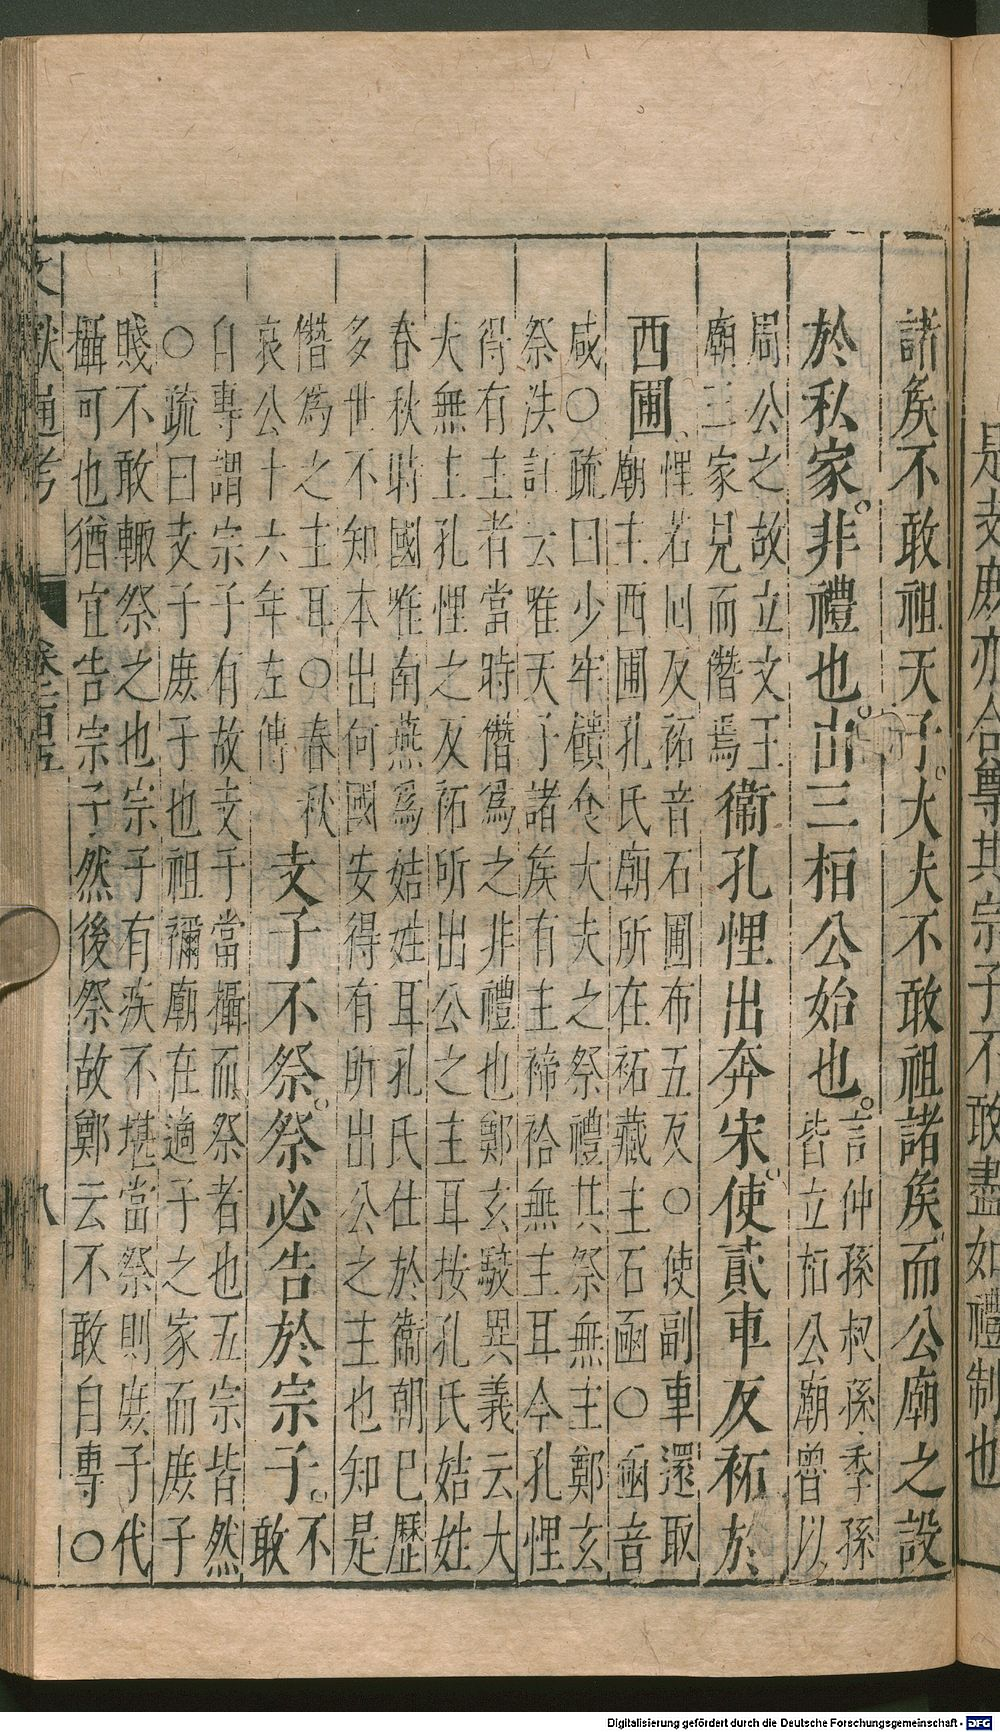 是支庶亦合尊其宗子不敢盡如禮制也
諸侯不敢祖天子大夫不敢祖諸侯而公廟之設
於私家非禮也由三桓公始也
言仲孫叔孫季孫
皆立桓公廟魯以
周公之故立文王
廟三家見而僭焉
衞孔悝出奔宋使貳車反祏於
西圃
悝若回反祏音石圃布五反○使副車還取
廟主西圃孔氏廟所在祏藏主石函○函音
咸○疏曰少牢饋食大夫之祭禮其祭無主鄭玄
祭法註云唯天子諸侯有主禘祫無主耳今孔悝
得有主者當時僭爲之非禮也鄭玄駮異義云大
夫無主孔悝之反祏所出公之主耳按孔氏姞姓
春秋時國唯南燕爲姞姓耳孔氏仕於衞朝已歷
多世不知本出何國安得有所出公之主也知是
僭爲之主耳○春秋
哀公十六年左傳
支子不祭祭必告於宗子
不
敢
自專謂宗子有故支子當攝而祭者也五宗皆然
○疏曰支子庶子也祖禰廟在適子之家而庶子
賤不敢輙祭之也宗子有疾不堪當祭則庶子代
攝可也猶宜告宗子然後祭故鄭云不敢自專○
文獻通考
八
Digitalisierung gefördert durch die Deutsche Forschungsgemeinschaft - DFG